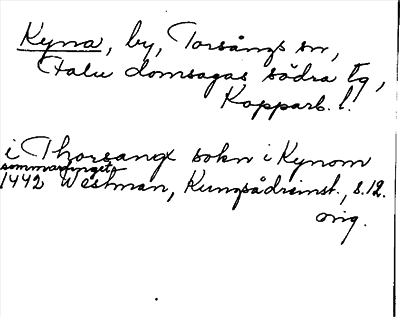 Kyna, by, Torsångs sn,
Falu domsagas södra tg,
Kopparb. l.
i Thorsangx sokn i Kynom
sommartinget
1442 Westman, Kungsådreinst., s. 12.
orig.